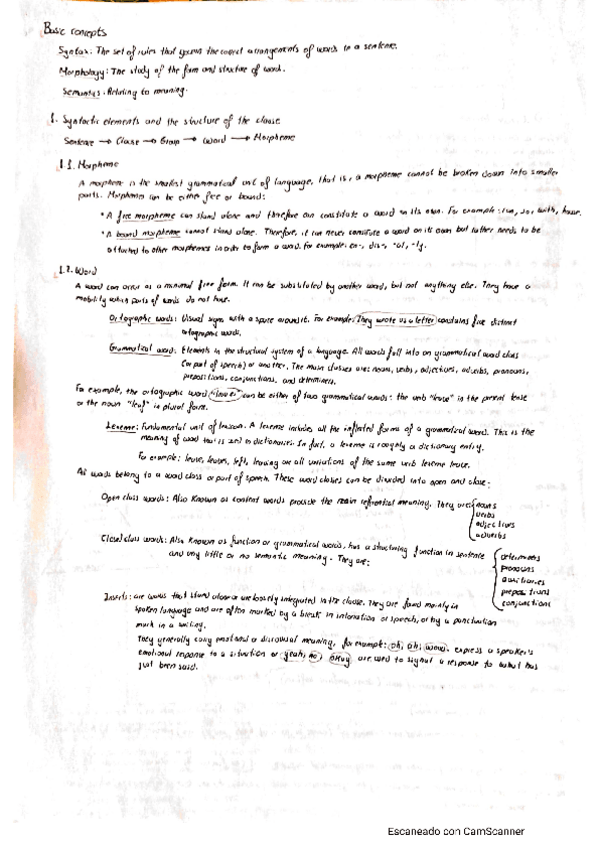 Basic concepts
Syntax: The set of rules that govern the correct arrangements of words in a sentence.
Morphology: The study of the form and structure of word.
Semantics: Relating to meaning.
1. Syntactic elements and the structure of the clause
Sentence → Clause → Group → Word → Morpheme
1.1. Morpheme
A morpheme is the smallest grammatical unit of language, that is, a morpheme cannot be broken down into smaller
parts. Morphemes can be either free or bound:
• A free morpheme can stand alone and therefore can constitute a word on its own. For example: run, with, house.
• A bound morpheme cannot stand alone. Therefore, it can never constitute a word on its own but rather needs to be
attached to other morphemes in order to form a word. For example: en-, dis-, -al, -ly.
1.2. Word
A word can occur as a minimal free form. It can be substituted by another word, but not anything else. They have a
mobility which parts of words do not have.
Ortographic words: Visual signs with a space around it. For example: They wrote us a letter constains five distinct
ortographic words.
Grammatical word: Elements in the structural system of a language. All words fall into on grammatical word class
(or part of speech) or another. The main classes are: nouns, verbs, adjectives, adverbs, pronouns,
prepositions, conjunctions, and determiners.
For example, the ortographic word "leaves" can be either of two grammatical words: the verb "leave" in the present tense
or the noun "leaf" in plural form.
Lexeme: Fundamental unit of lexicon. A lexeme includes all the inflected forms of a grammatical word. This is the
meaning of word that is used in dictionaries. In fact, a lexeme is roughly a dictionary entry.
For example: leave, leaves, left, leaving are all variations of the same verb lexeme leave.
All words belong to a word class or part of speech. These word classes can be divided into open and close:
Open class words: Also known as content words provide the main referential meaning. They are: nouns
verbs
adjectives
adverbs
Closed class words: Also known as function or grammatical words, has a structuring function in sentence
and only little or no semantic meaning. They are:
determiners
pronouns
auxiliaries
prepositions
conjunctions
Inserts: are words that stand alone or are loosely integrated in the clause. They are found mainly in
spoken language and are often marked by a break in intonation or speech, or by a punctuation
mark in a writing.
They generally carry emotional or discoursal meaning, for example: oh, ah, wow, express a speaker's
emotional response to a situation or yeah, no, okay are used to signal a response to what has
just been said.
Escaneado con CamScanner